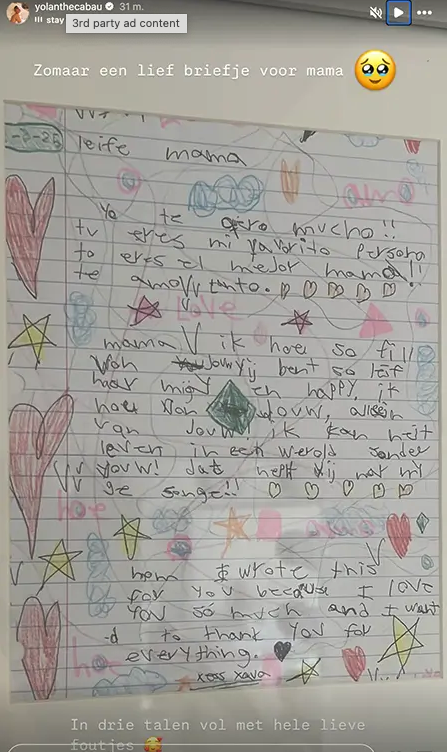 yolanthecabau 31 m.
stay
3rd party ad content
Zomaar een lief briefje voor mama 🥹
-3-25
leife mama
Yo te qiro mucho!!
tu eres mi favorito persona
tu eres el mejor mama!!
te amo tanto. ♡ ♡ ♡ ♡ ♡
amo
Love
mama ik hoe so fill
Van jouw jij bent so leif
haar mig en happy, ik
hou van jouw, allein
van jouw! ik kan neit
leven in een werold sonder
youw! dat heft jij mat mij
ge songe!! ♡ ♡ ♡ ♡ ♡
I wrote this
for you because I love
you so much and I want
-d to thank you for
everything. 🖤
xess xava
In drie talen vol met hele lieve
foutjes 🥰